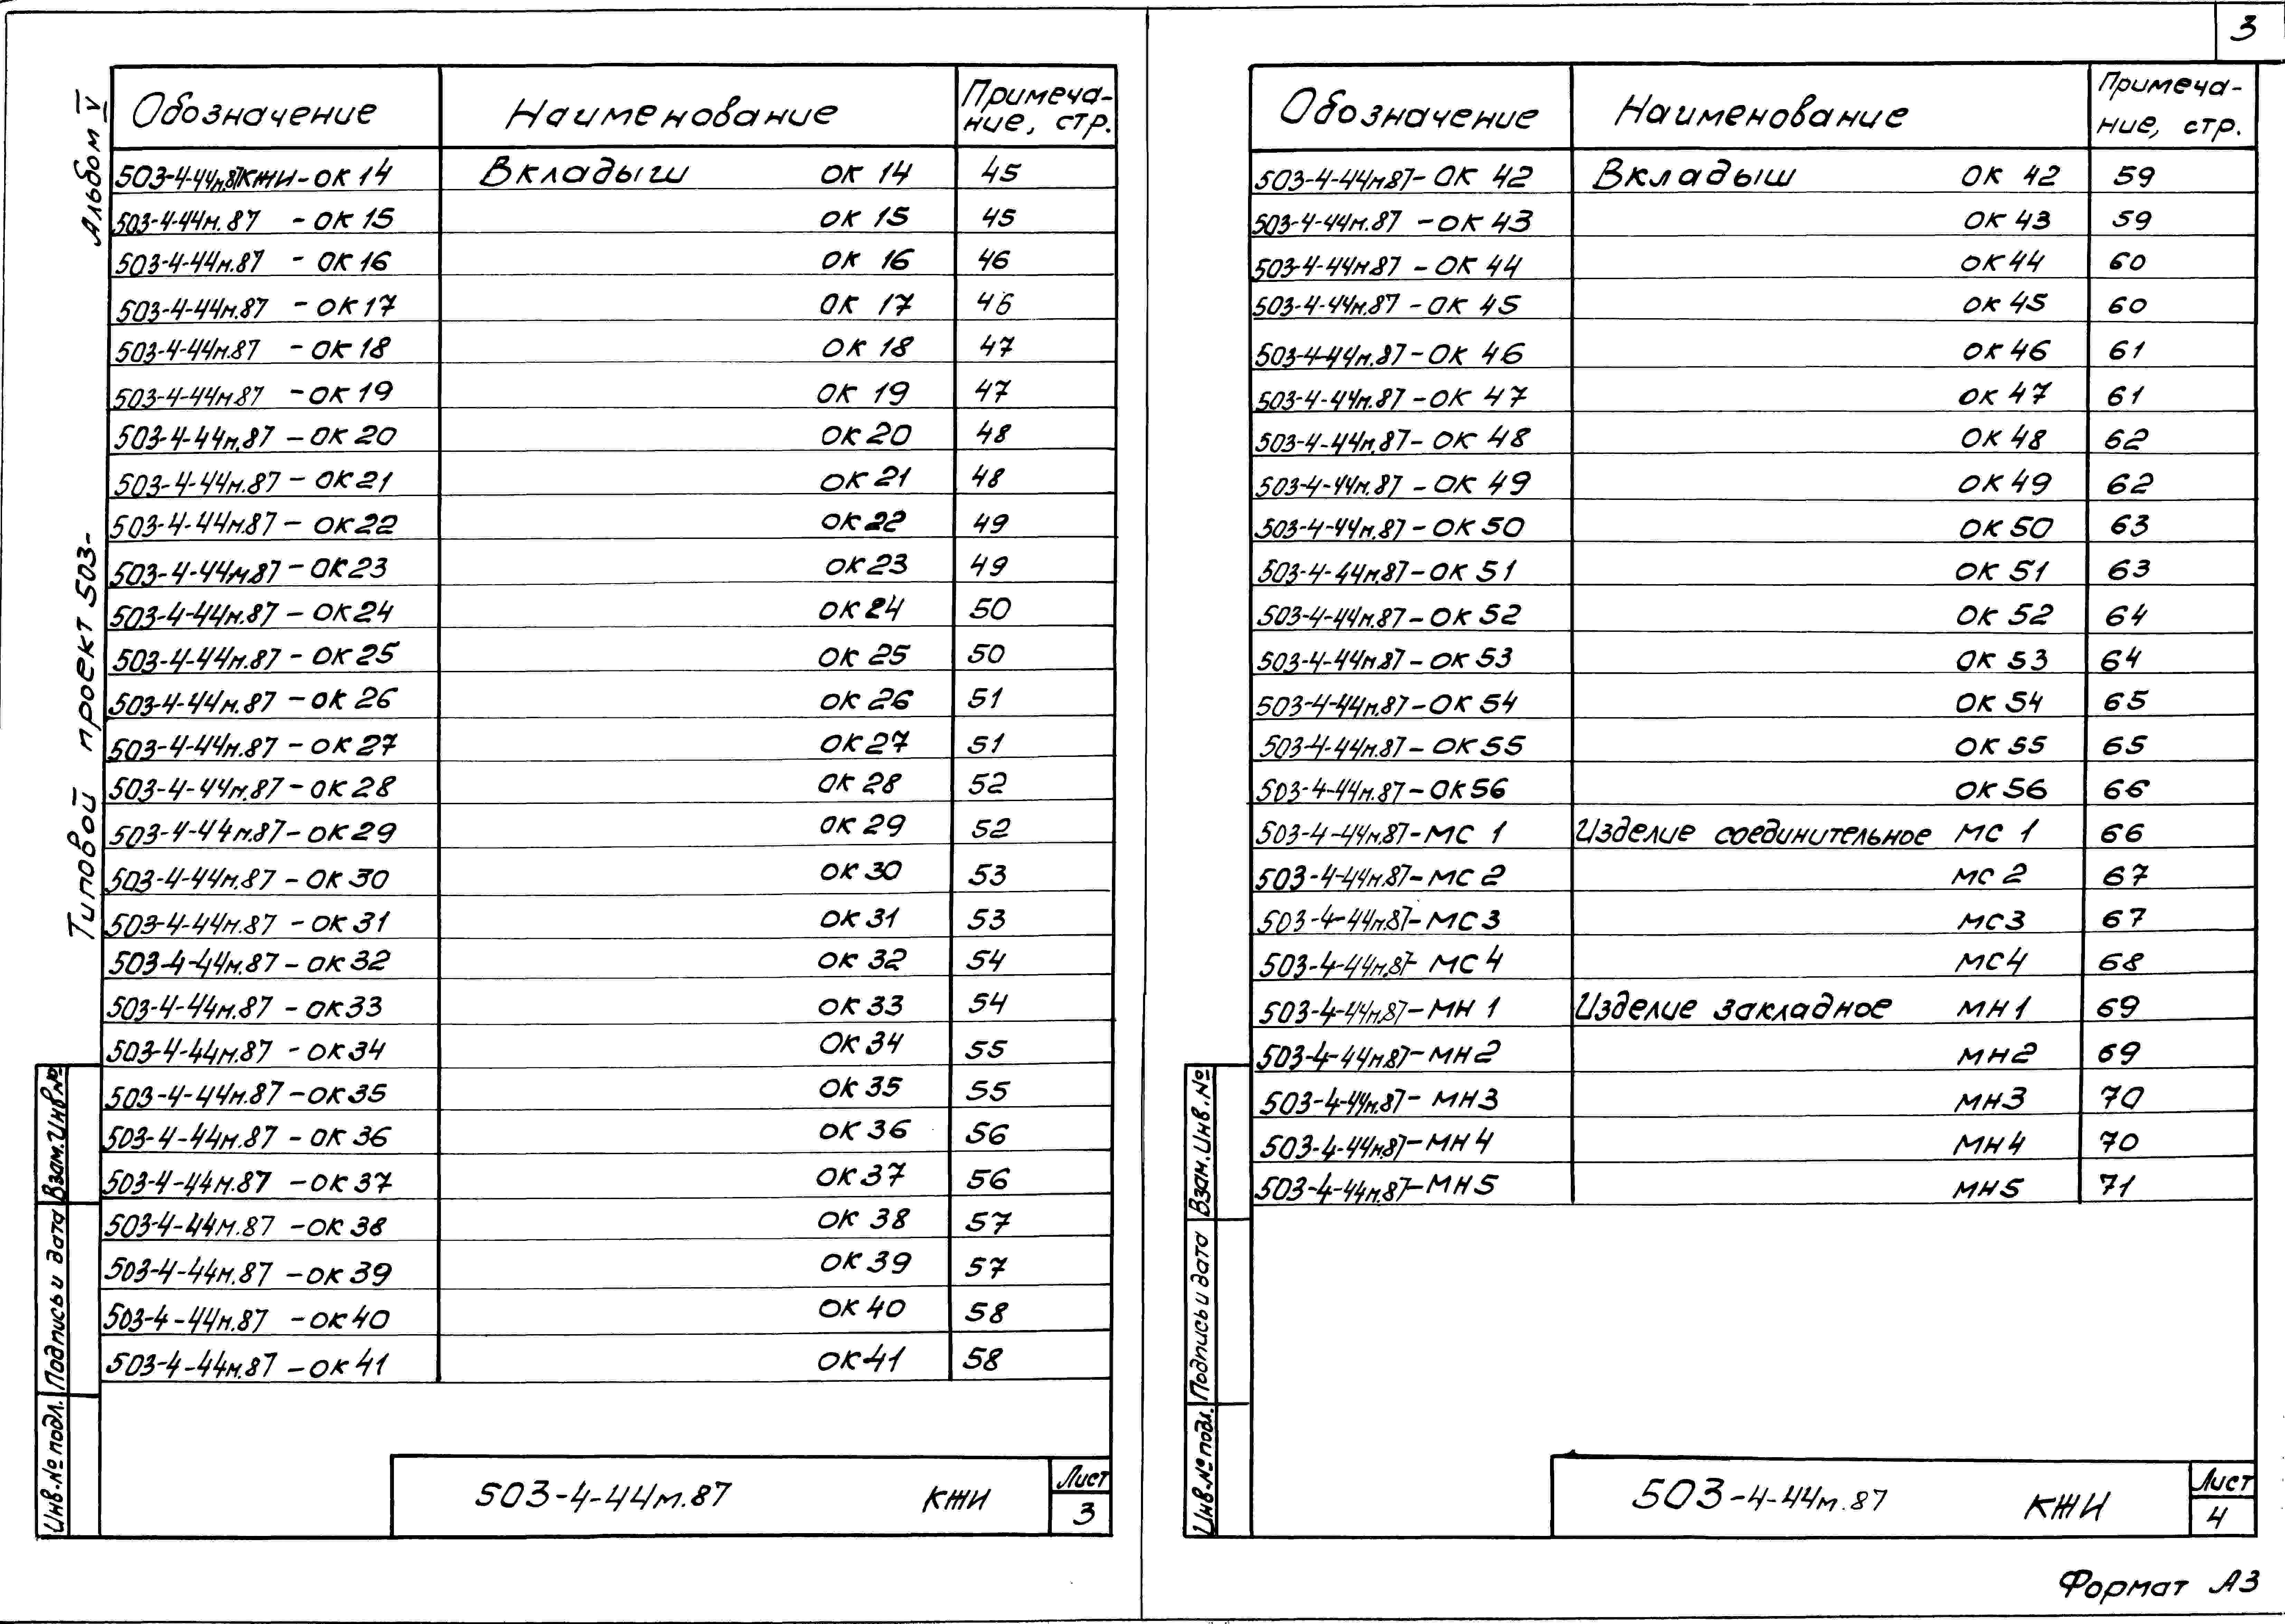 3
Альбом V
Типовой проект 503-
Обозначение Наименование Примеча-
ние, стр.
503-4-44м.87КЖИ-ОК 14 Вкладыш ОК 14 45
503-4-44м.87 - ОК 15 ОК 15 45
503-4-44м.87 - ОК 16 ОК 16 46
503-4-44м.87 - ОК 17 ОК 17 46
503-4-44м.87 - ОК 18 ОК 18 47
503-4-44м87 - ОК 19 ОК 19 47
503-4-44м.87 - ОК 20 ОК 20 48
503-4-44м.87 - ОК 21 ОК 21 48
503-4-44м.87 - ОК 22 ОК 22 49
503-4-44м.87 - ОК 23 ОК 23 49
503-4-44м.87 - ОК 24 ОК 24 50
503-4-44м.87 - ОК 25 ОК 25 50
503-4-44м.87 - ОК 26 ОК 26 51
503-4-44м.87 - ОК 27 ОК 27 51
503-4-44м.87 - ОК 28 ОК 28 52
503-4-44м.87 - ОК 29 ОК 29 52
503-4-44м.87 - ОК 30 ОК 30 53
503-4-44м.87 - ОК 31 ОК 31 53
503-4-44м.87 - ОК 32 ОК 32 54
503-4-44м.87 - ОК 33 ОК 33 54
503-4-44м.87 - ОК 34 ОК 34 55
503-4-44м.87 - ОК 35 ОК 35 55
503-4-44м.87 - ОК 36 ОК 36 56
503-4-44м.87 - ОК 37 ОК 37 56
503-4-44м.87 - ОК 38 ОК 38 57
503-4-44м.87 - ОК 39 ОК 39 57
503-4-44м.87 - ОК 40 ОК 40 58
503-4-44м.87 - ОК 41 ОК 41 58
Взам.Инв.№
Подпись и дата
Инв.№ подл.
503-4-44м.87 КЖИ
Лист
3
Обозначение Наименование Примеча-
ние, стр.
503-4-44м.87 - ОК 42 Вкладыш ОК 42 59
503-4-44м.87 - ОК 43 ОК 43 59
503-4-44м87 - ОК 44 ОК 44 60
503-4-44м.87 - ОК 45 ОК 45 60
503-4-44м.87 - ОК 46 ОК 46 61
503-4-44м.87 - ОК 47 ОК 47 61
503-4-44м.87 - ОК 48 ОК 48 62
503-4-44м.87 - ОК 49 ОК 49 62
503-4-44м.87 - ОК 50 ОК 50 63
503-4-44м.87 - ОК 51 ОК 51 63
503-4-44м.87 - ОК 52 ОК 52 64
503-4-44м.87 - ОК 53 ОК 53 64
503-4-44м.87 - ОК 54 ОК 54 65
503-4-44м.87 - ОК 55 ОК 55 65
503-4-44м.87 - ОК 56 ОК 56 66
503-4-44м.87 - МС 1 Изделие соединительное МС 1 66
503-4-44м.87 - МС 2 МС 2 67
503-4-44м.87 - МС 3 МС 3 67
503-4-44м.87 МС 4 МС 4 68
503-4-44м.87 - МН 1 Изделие закладное МН 1 69
503-4-44м87 - МН 2 МН 2 69
503-4-44м.87 - МН 3 МН 3 70
503-4-44м.87 - МН 4 МН 4 70
503-4-44м.87 - МН 5 МН 5 71
Взам.Инв.№
Подпись и дата
Инв.№ подл.
503-4-44м.87 КЖИ
Лист
4
Формат А3